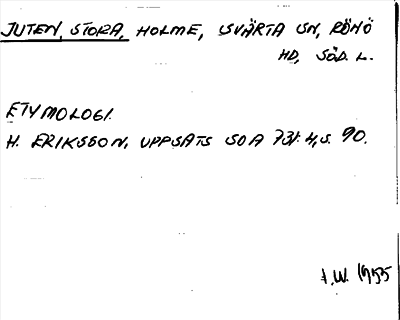 JUTEN, STORA, HOLME, SVÄRTA SN, RÖNÖ
HD, SÖD. L.
ETYMOLOGI.
H. ERIKSSON, UPPSATS SOA 731:4, S. 90.
A.W. 1955